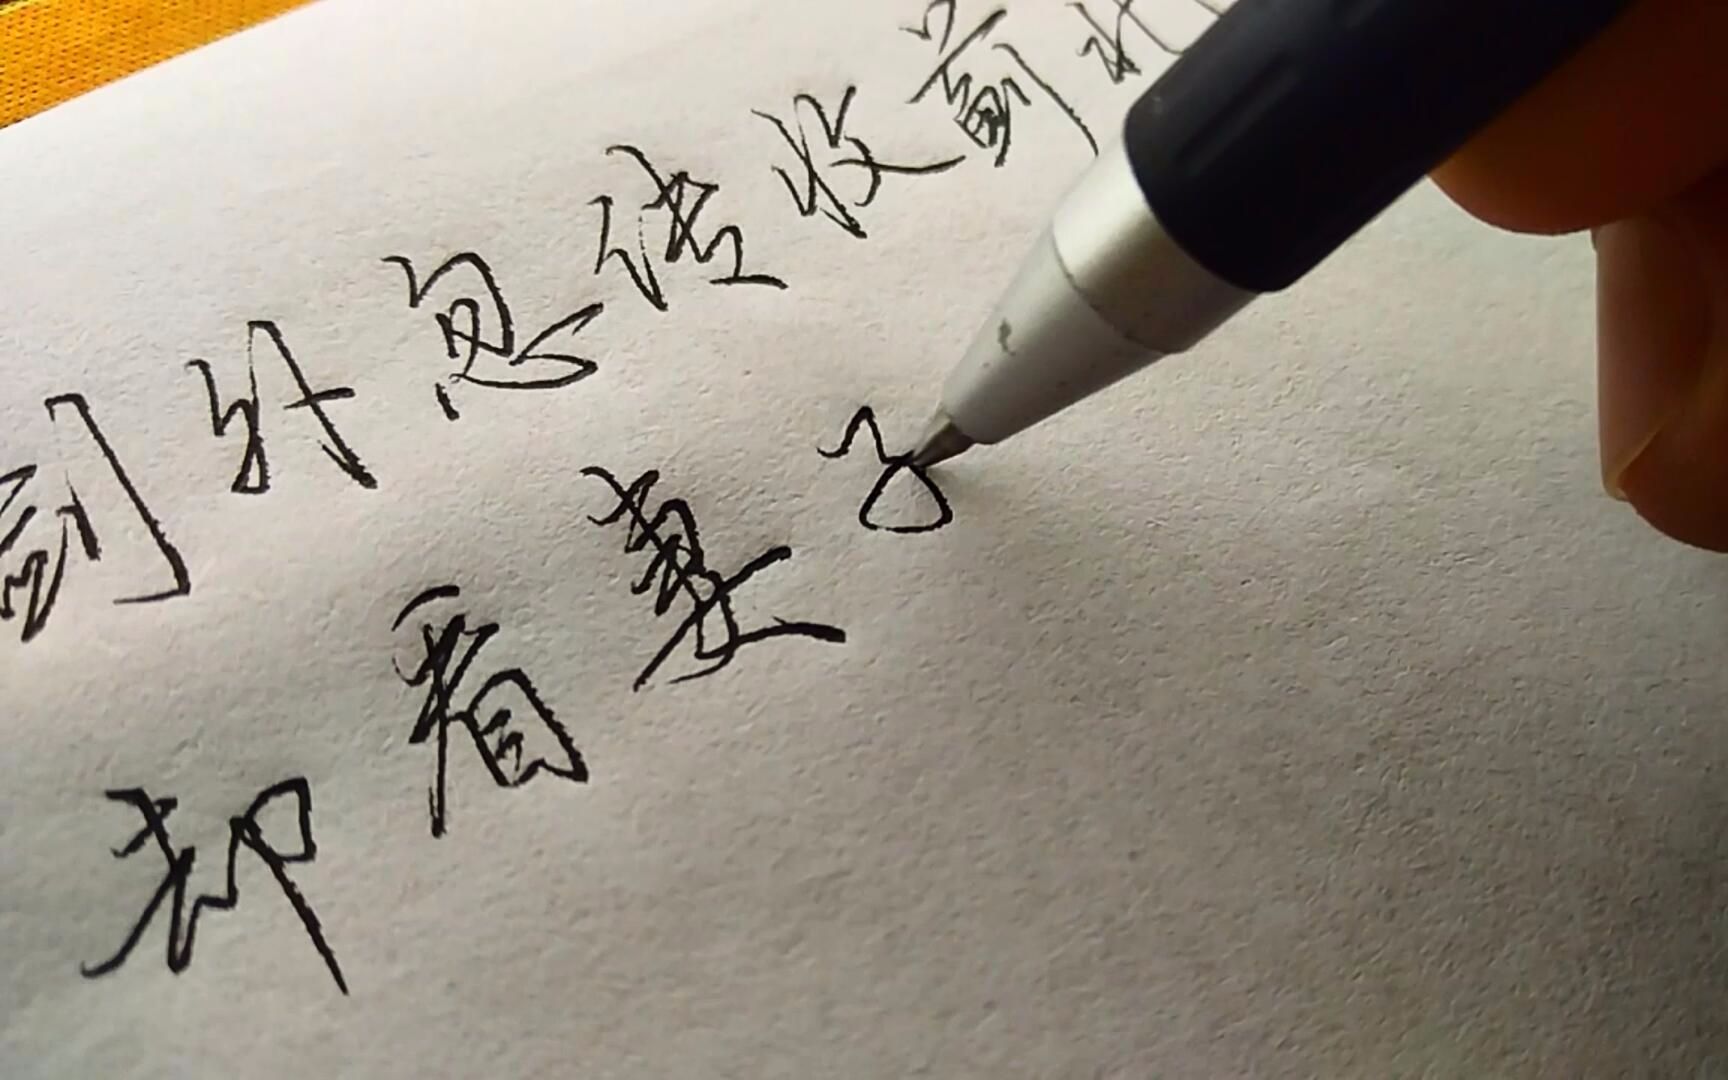 剑外忽传收蓟北
却看妻子